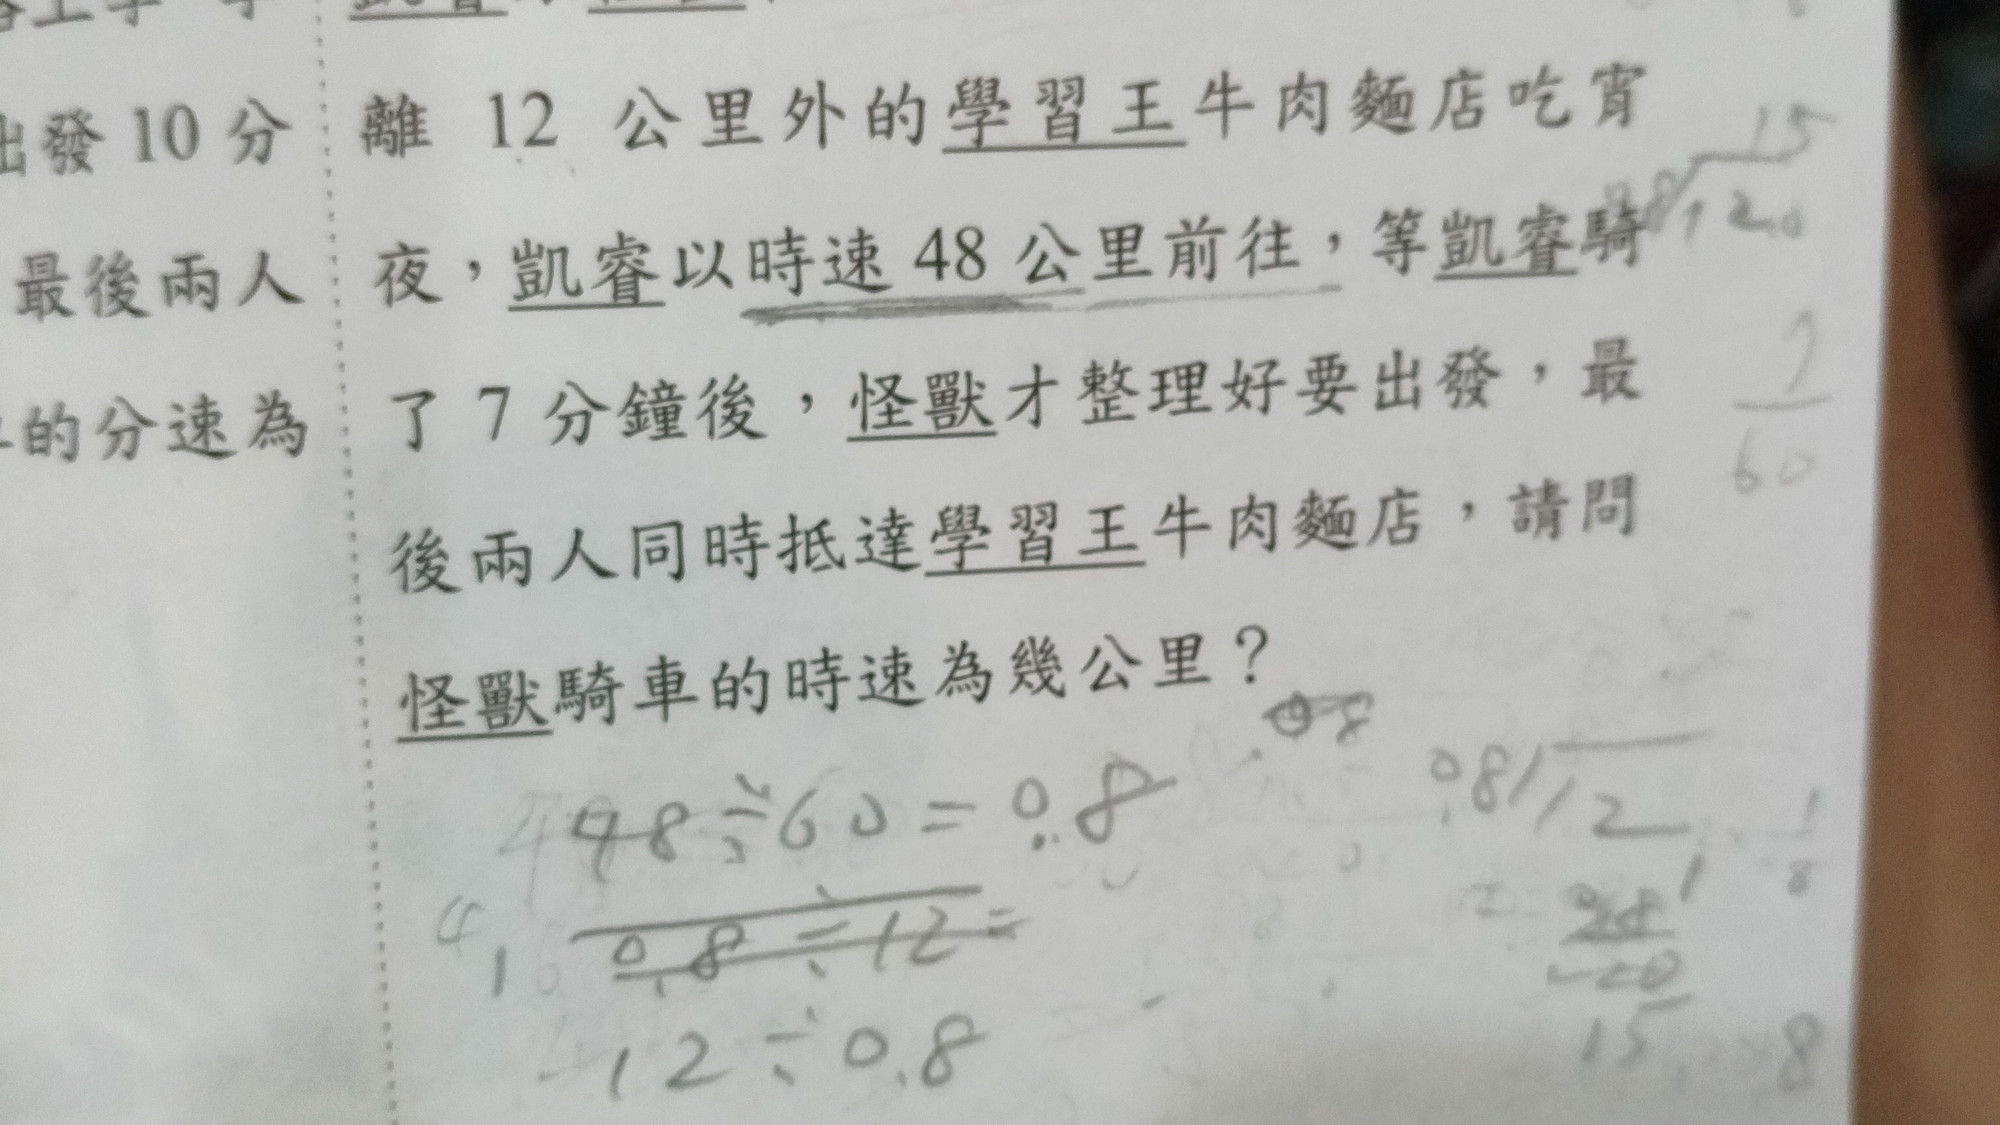 出發 10 分
最後兩人
的分速為
離 12 公里外的學習王牛肉麵店吃宵
夜，凱睿以時速 48 公里前往，等凱睿騎
了 7 分鐘後，怪獸才整理好要出發，最
後兩人同時抵達學習王牛肉麵店，請問
怪獸騎車的時速為幾公里？
48÷60=0.8
0.8÷12=
12÷0.8
15
7
60
0.8
12
15
8
1
8